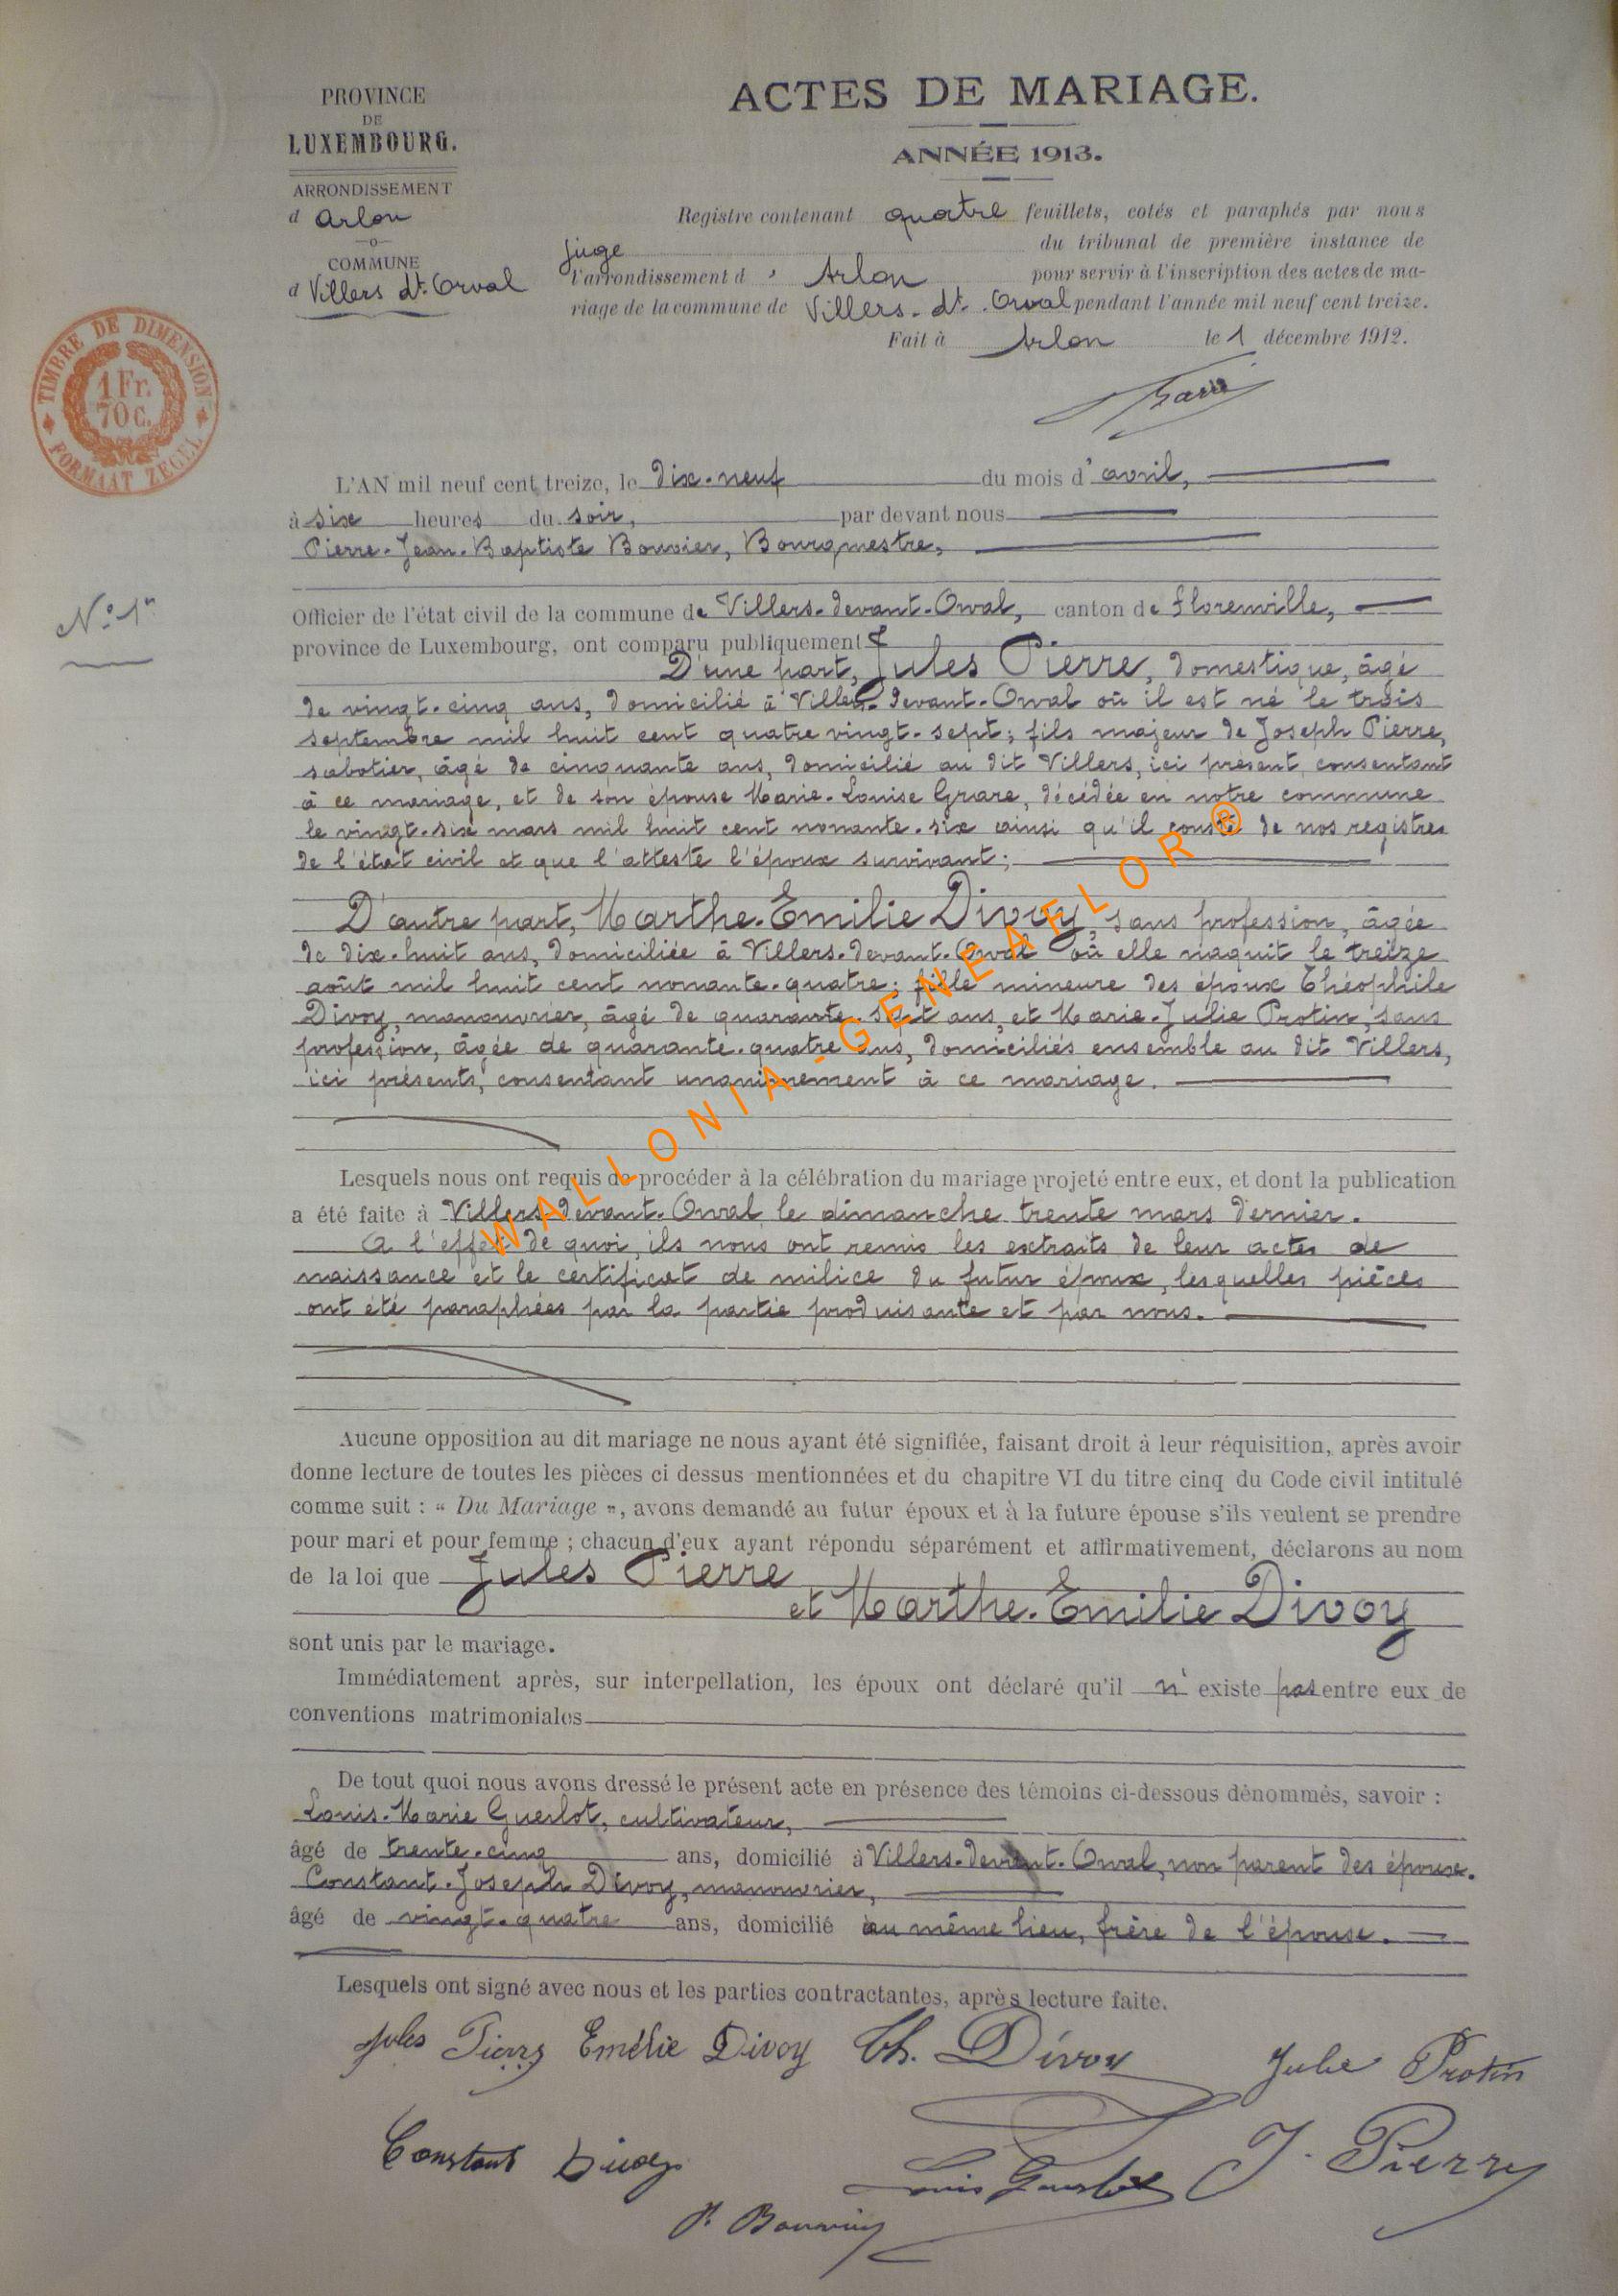 PROVINCE
DE
LUXEMBOURG.
ARRONDISSEMENT
d Arlon
COMMUNE
d Villers dt. Orval
ACTES DE MARIAGE.
ANNÉE 1913.
Registre contenant quatre feuillets, cotés et paraphés par nous
juge du tribunal de première instance de
l'arrondissement d' Arlon pour servir à l'inscription des actes de ma-
riage de la commune de Villers-dt-Orval pendant l'année mil neuf cent treize.
Fait à Arlon le 1 décembre 1912.
TIMBRE DE DIMENSION
1 Fr.
70 c.
FORMAAT ZEGEL
L'AN mil neuf cent treize, le dix-neuf du mois d'avril,
à six heures du soir, par devant nous
Pierre-Jean-Baptiste Bouvier, Bourgmestre,
N° 1er
Officier de l'état civil de la commune de Villers-devant-Orval, canton de Florenville,
province de Luxembourg, ont comparu publiquement
D'une part, Jules Pierre, domestique, âgé
de vingt-cinq ans, domicilié à Villers-devant-Orval où il est né le trois
septembre mil huit cent quatre vingt-sept; fils majeur de Joseph Pierre,
sabotier, âgé de cinquante ans, domicilié au dit Villers, ici présent, consentant
à ce mariage, et de son épouse Marie-Louise Grare, décédée en notre commune
le vingt-six mars mil huit cent nonante-six ainsi qu'il conste de nos registres
de l'état civil et que l'atteste l'époux survivant;
D'autre part, Marthe-Emilie Divoy, sans profession, âgée
de dix-huit ans, domiciliée à Villers-devant-Orval où elle naquit le treize
août mil huit cent nonante-quatre; fille mineure des époux Théophile
Divoy, manouvrier, âgé de quarante-sept ans, et Marie-Julie Protin, sans
profession, âgée de quarante-quatre ans, domiciliés ensemble au dit Villers,
ici présents, consentant unanimement à ce mariage.
Lesquels nous ont requis de procéder à la célébration du mariage projeté entre eux, et dont la publication
a été faite à Villers-devant-Orval le dimanche trente mars dernier.
A l'effet de quoi, ils nous ont remis les extraits de leur actes de
naissance et le certificat de milice du futur époux, lesquelles pièces
ont été paraphées par la partie produisante et par nous.
Aucune opposition au dit mariage ne nous ayant été signifiée, faisant droit à leur réquisition, après avoir
donne lecture de toutes les pièces ci dessus mentionnées et du chapitre VI du titre cinq du Code civil intitulé
comme suit : « Du Mariage », avons demandé au futur époux et à la future épouse s'ils veulent se prendre
pour mari et pour femme ; chacun d'eux ayant répondu séparément et affirmativement, déclarons au nom
de la loi que Jules Pierre
et Marthe-Emilie Divoy
sont unis par le mariage.
Immédiatement après, sur interpellation, les époux ont déclaré qu'il n' existe pas entre eux de
conventions matrimoniales
De tout quoi nous avons dressé le présent acte en présence des témoins ci-dessous dénommés, savoir :
Louis-Marie Guerlot, cultivateur,
âgé de trente-cinq ans, domicilié à Villers-devant-Orval, non parent des époux.
Constant-Joseph Divoy, manouvrier,
âgé de vingt-quatre ans, domicilié au même lieu, frère de l'épouse.
Lesquels ont signé avec nous et les parties contractantes, après lecture faite.
Jules Pierre Emélie Divoy Th. Divoy Julie Protin
Constant Divoy Louis Guerlot J. Pierre
P. Bouvier
WALLONIA-GENEAFLOR®